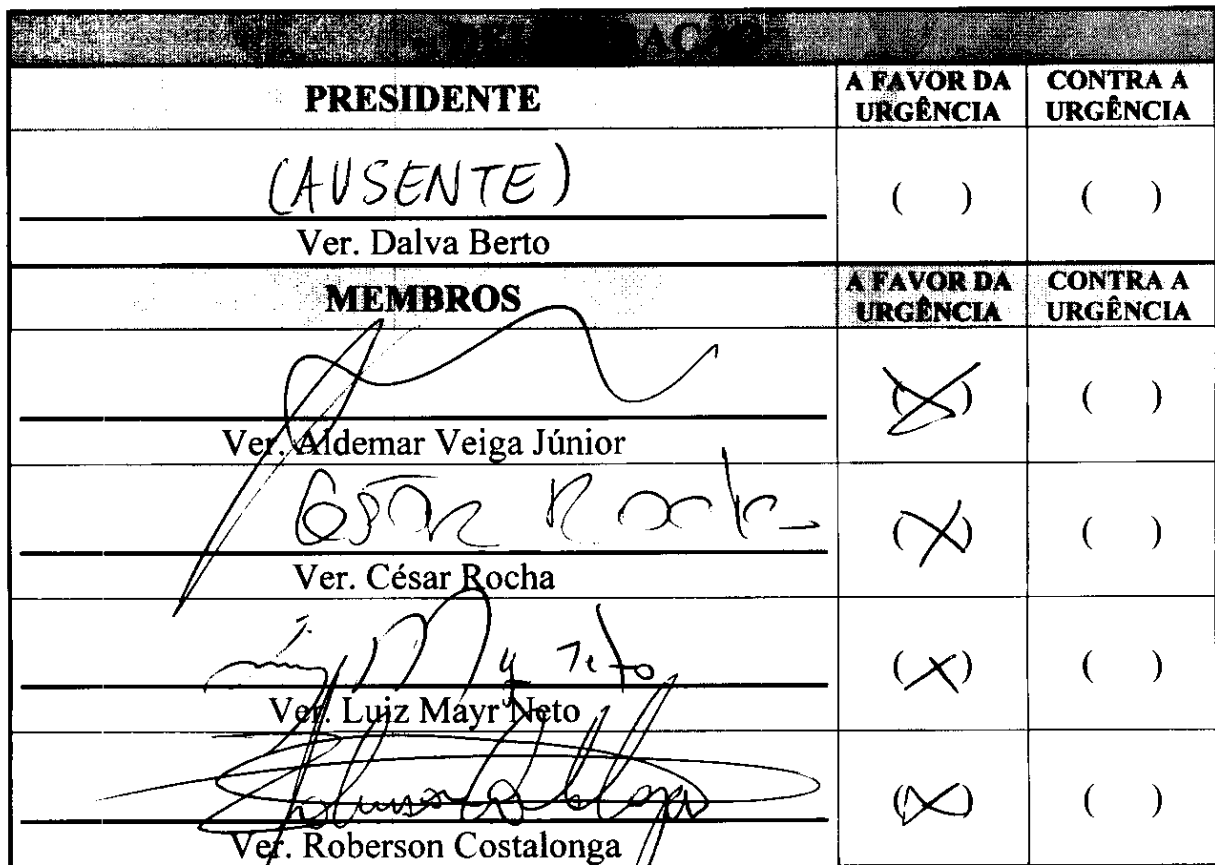 DELIBERAÇÃO
PRESIDENTE A FAVOR DA URGÊNCIA CONTRA A URGÊNCIA
(AUSENTE) ( ) ( )
Ver. Dalva Berto
MEMBROS A FAVOR DA URGÊNCIA CONTRA A URGÊNCIA
(X) ( )
Ver. Aldemar Veiga Júnior
César Rocha (X) ( )
Ver. César Rocha
(X) ( )
Ver. Luiz Mayr Neto
(X) ( )
Ver. Roberson Costalonga